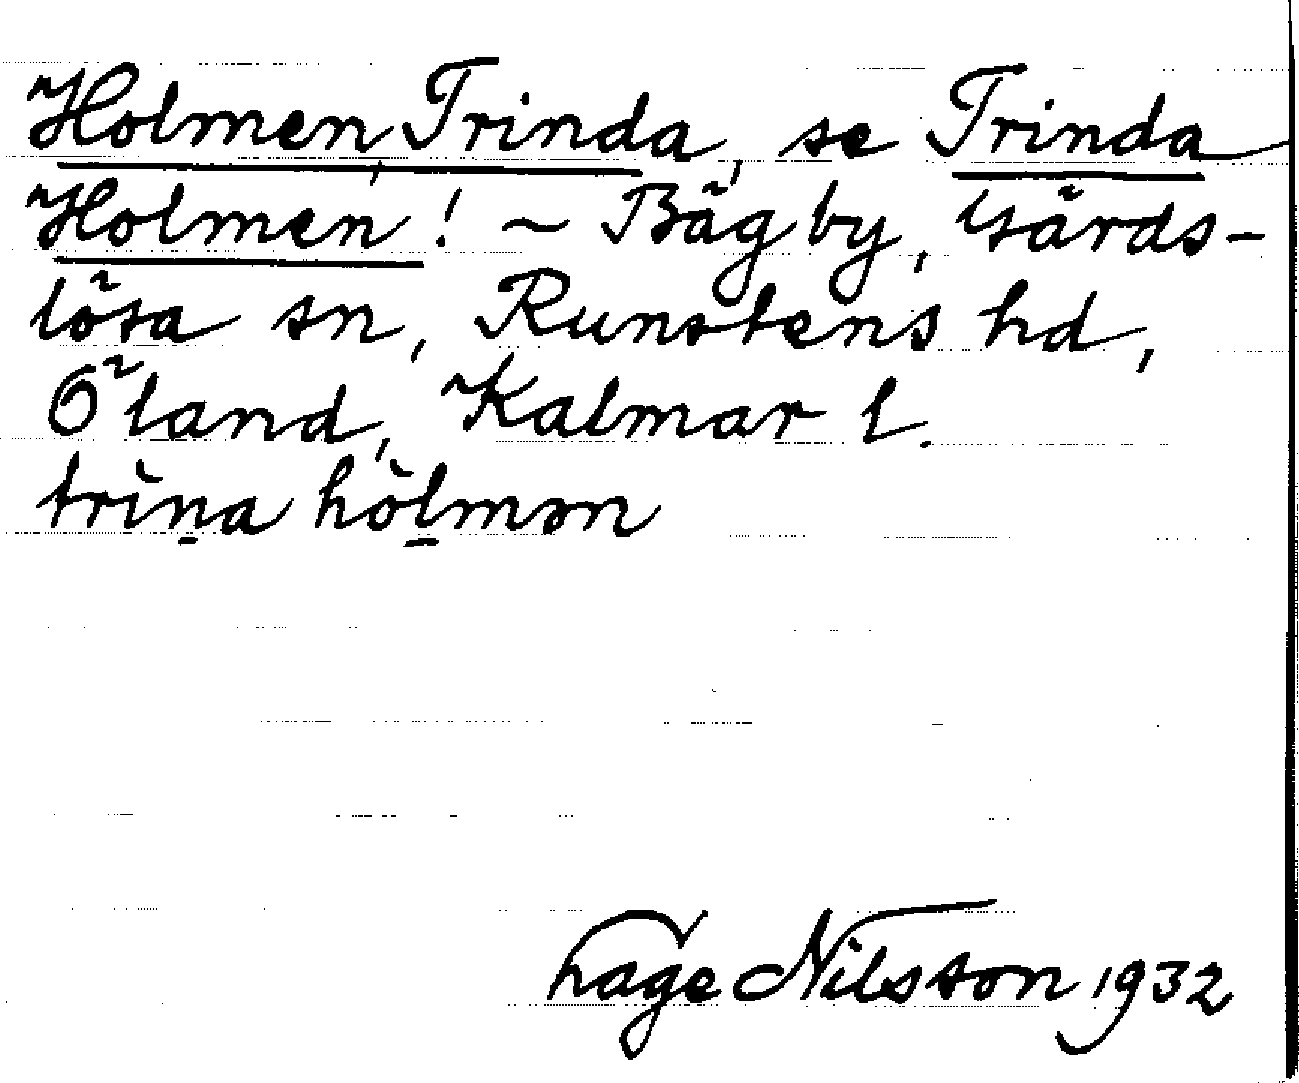 Holmen, Trinda, se Trinda
Holmen! ~ Bägby, Gärds-
lösa sn, Runstens hd,
Öland, Kalmar l.
trìn̠a hòl̠mən
Lage Nilsson 1932